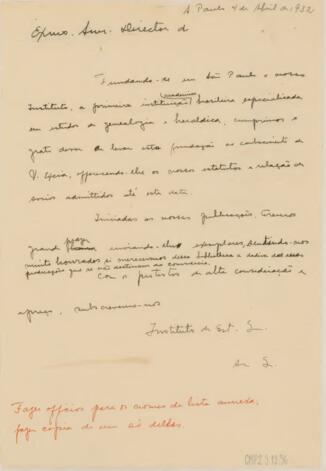 S. Paulo 4 de Abril de 1932
Exmo. Snr. Director d
Fundando-se em São Paulo o nosso
Instituto, a primeira instituição academica brasileira especializada
em estudos de genealogia e heraldica, cumprimos o
grato dever de levar esta fundação ao conhecimento de
V. Excia, offerecendo-lhe os nossos estatutos e relação de
socios admittidos até esta data.
Iniciadas as nossas publicações, teremos
grande prazer enviando-lhes exemplares,
muito honrados si merecermos dessa bibliotheca a dadiva
publicações que se não destinem ao commercio.
Com os protestos de alta consideração e
apreço, subscrevemo-nos
Instituto de Est. G.
Fazer officios para os nomes da lista annexa,
fazer cópia de um só delles.